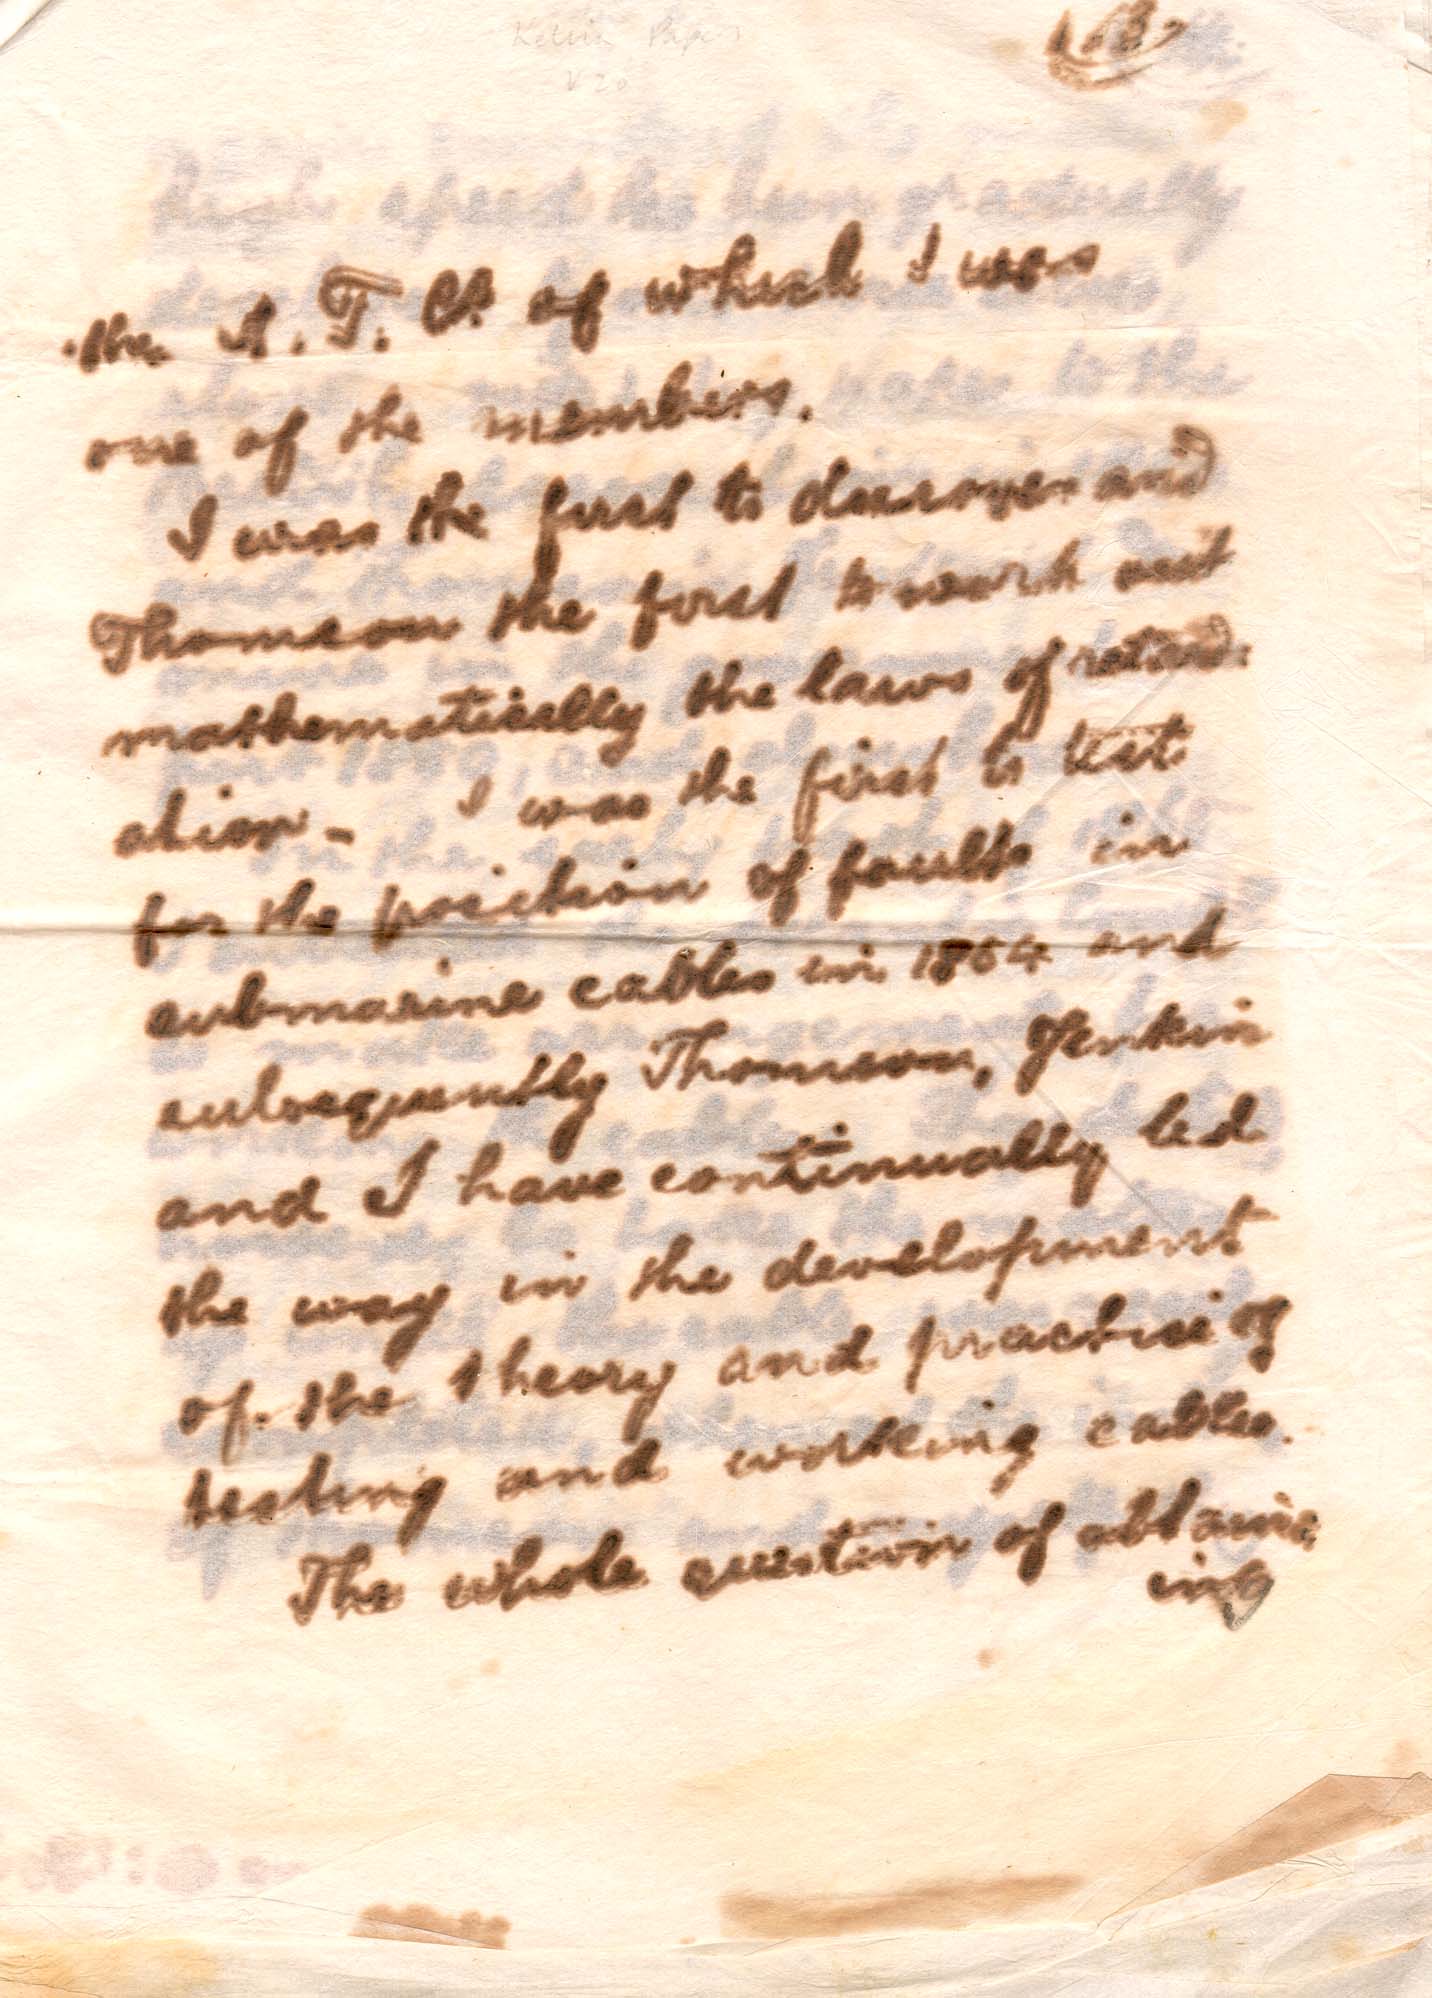 Kelvin Papers
V 20
the A. T. Co. of which I was
one of the members.
I was the first to discover and
Thomson the first to work out
mathematically the laws of retard-
ation - I was the first to test
for the position of faults in
submarine cables in 1864 and
subsequently Thomson, Jenkin
and I have continually led
the way in the development
of the theory and practise of
testing and working cables.
The whole question of obtain-
ing